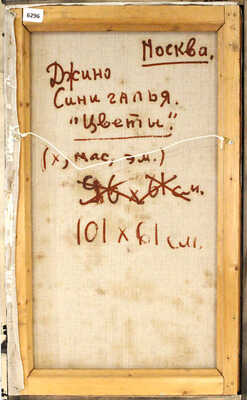 6296
Москва.
Джино
Синигалья.
"Цветы."
(х, мас, эм.)
96 х 64 см.
101 х 61 см.